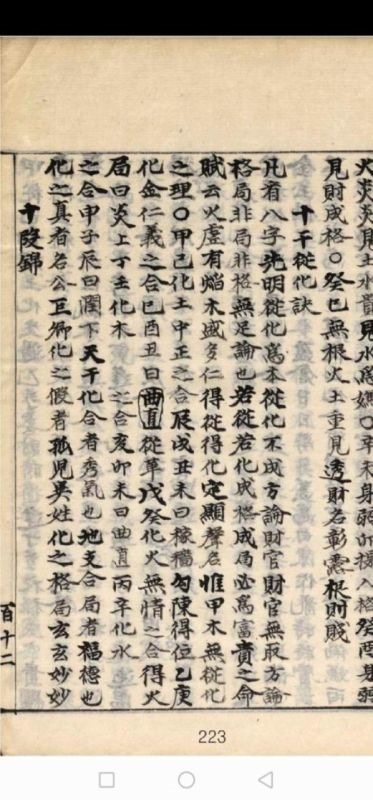 火炎炎見土水貴見水為
見財成格〇癸巳無根火土重見透財名彰露根則賤
十干從化訣
凡看八字先明從化為本從化不成方論財官財官無取方論
格局非局非格無足論也若從若化成格成局必為富貴之命
賦云火虛有焰木盛多仁得從得化定顯聲名惟甲木無從化
之理〇甲己化土中正之合辰戌丑未曰稼穡勾陳得位乙庚
化金仁義之合巳酉丑曰曲直從革戊癸化火無情之合得火
局曰炎上丁壬化木之合亥卯未曰曲直丙辛化水
之合申子辰曰潤下天干化合者秀氣也地支合局者福德也
化之真者名公巨卿化之假者孤兒異姓化之格局玄玄妙妙
十段錦
百十二
223